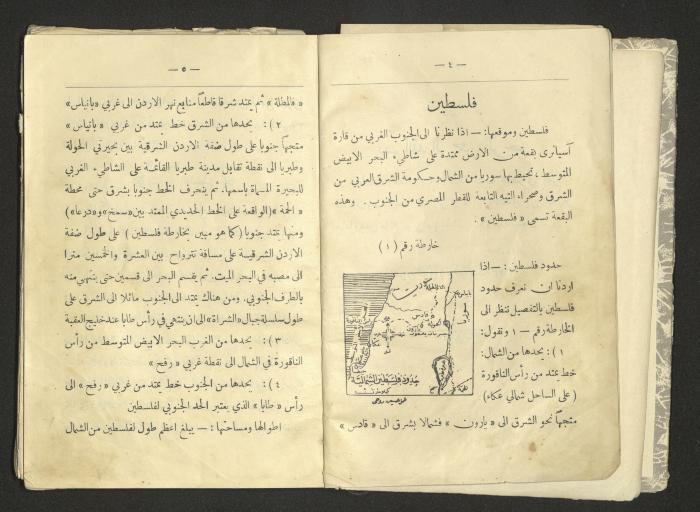 — ٤ —
فلسطين
فلسطين وموقعها: — اذا نظرنا الى الجنوب الغربي من قارة
آسيا نرى بقعة من الارض ممتدة على شاطىء البحر الابيض
المتوسط، تحيط بها سوريا من الشمال وحكومة الشرق العربي من
الشرق وصحراء التيه التابعة للقطر المصري من الجنوب . وهذه
البقعة تسمى « فلسطين » .
خارطة رقم (١)
حدود فلسطين : — اذا
اردنا ان نعرف حدود
فلسطين بالتفصيل ننظر الى
الخارطة رقم — ١ ونقول:
١): يحدها من الشمال:
خط يمتد من رأس الناقورة
(على الساحل شمالي عكاء)
متجهاً نحو الشرق الى « يارون » فشمالا بشرق الى « قادس »
حدود فلسطين الشمالية
— ٥ —
« فالمطلة » ثم يمتد شرقا قاطعاً منابع نهر الاردن الى غربي «بانياس»
٢): يحدها من الشرق خط يمتد من غربي « بانياس »
متجهاً جنوبا على طول ضفة الاردن الشرقية بين بحيرتي الحولة
وطبريا الى نقطة تقابل مدينة طبريا القائمة على الشاطىء الغربي
للبحيرة المسماة باسمها. ثم ينحرف الخط جنوبا بشرق حتى محطة
« الحمة » (الواقعة على الخط الحديدي الممتد بين «سمخ» و«درعا»)
ومنها تمتد جنوبا (كما هو مبين بخارطة فلسطين ) على طول ضفة
الاردن الشرقية على مسافة تتراوح بين العشرة والخمسين مترا
الى مصبه في البحر الميت. ثم يقسم البحر الى قسمين حتى ينتهي منه
بالطرف الجنوبي. ومن هناك يمتد الى الجنوب مائلا الى الشرق على
طول سلسلة جبال «الشراة» الى ان ينتهي في رأس طابا عند خليج العقبة
٣): يحدها من الغرب البحر الابيض المتوسط من رأس
الناقورة في الشمال الى نقطة غربي « رفح »
٤): يحدها من الجنوب خط يمتد من غربي « رفح » الى
رأس « طابا » الذي يعتبر الحد الجنوبي لفلسطين
اطوالها ومساحتها : — يبلغ اعظم طول لفلسطين من الشمال